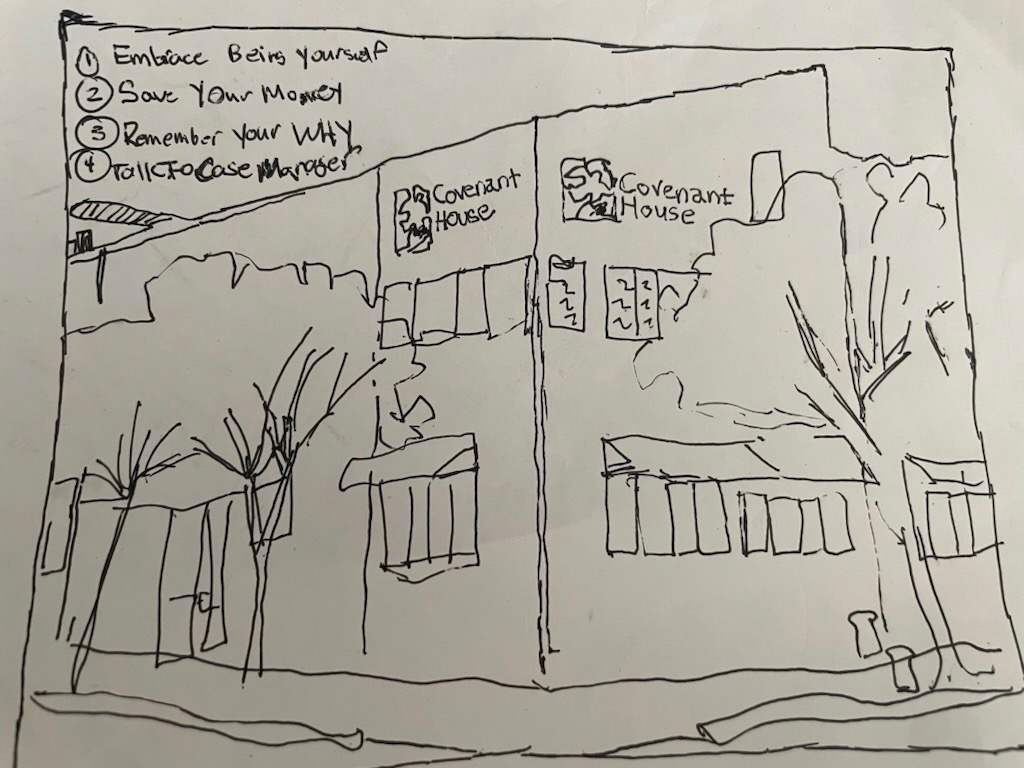 ① Embrace Being Yourself
② Save Your Money
③ Remember Your WHY
④ Talk To Case Manager
Covenant
House
Covenant
House